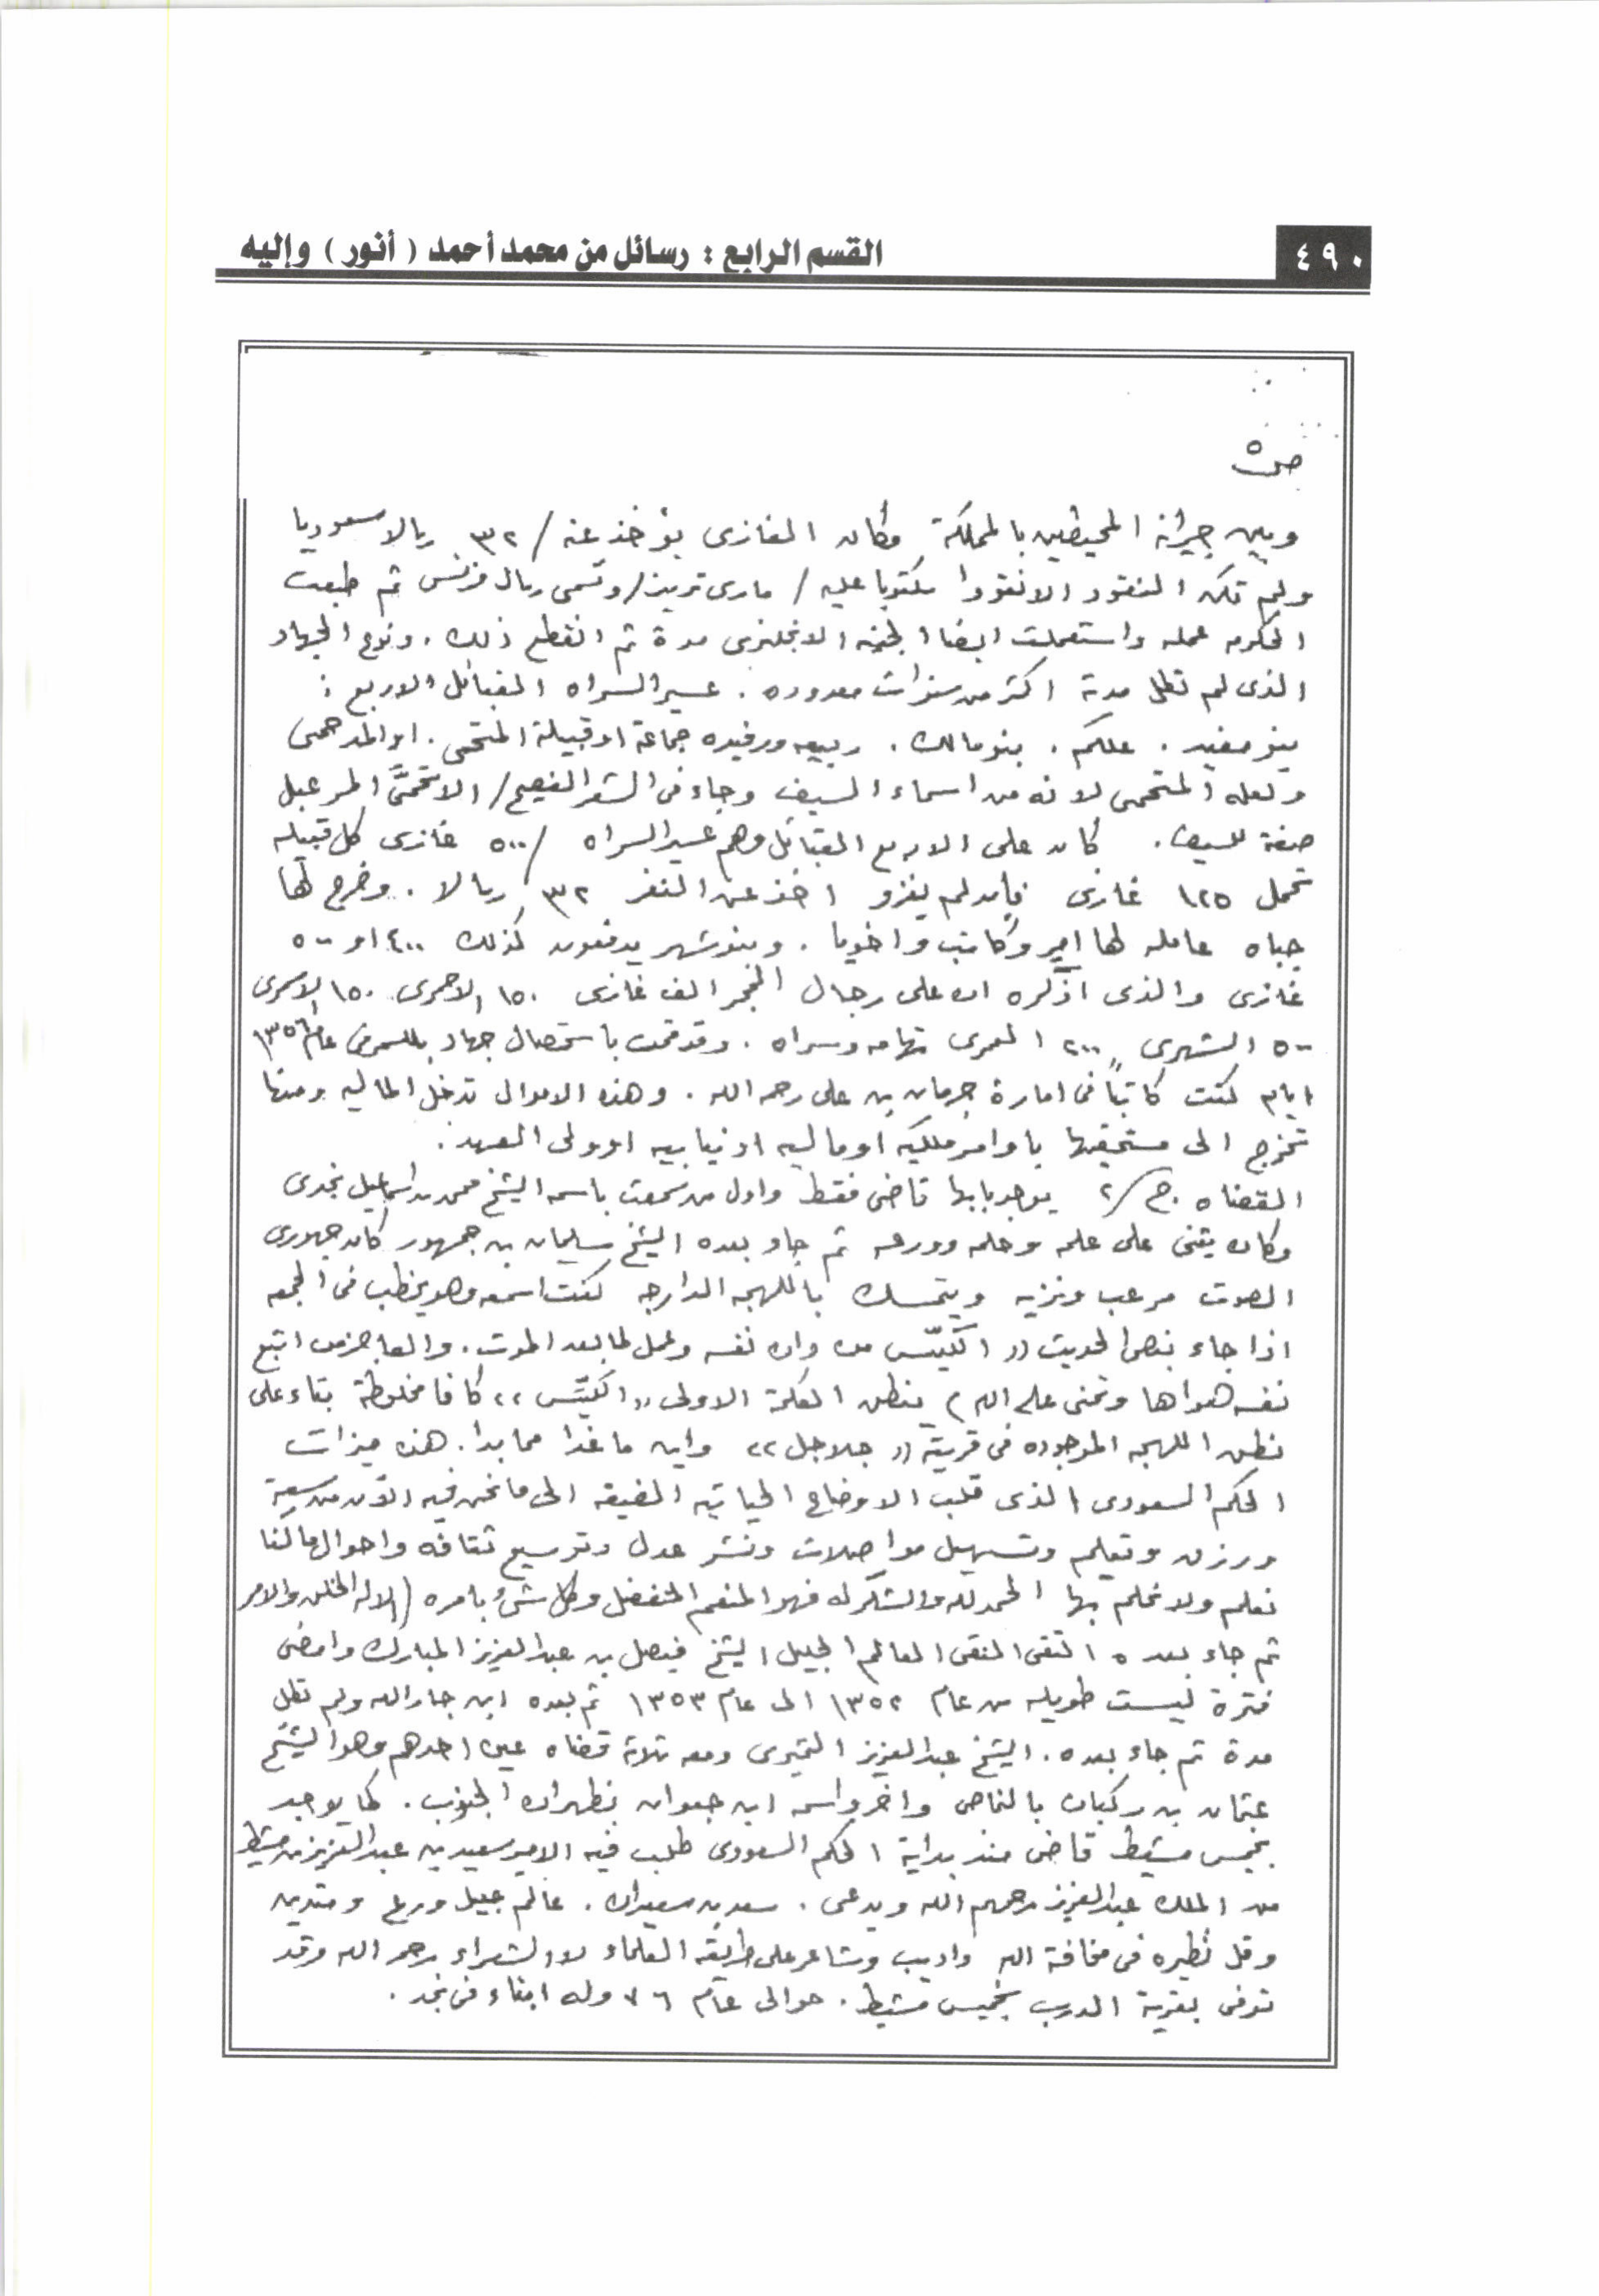 ٤٩٠
القسم الرابع : رسائل من محمد أحمد ( أنور ) وإليه
ص٥
وبين جيرانه المحيطين بالمملكة وكان الغازى يؤخذ عنه / ٣٢ ريالا سعوديا
ولم تكن النقود الا نقودا مكتوبا عليه / مارى تريز / وتسمى ريال فرنسى ثم طبعت
الحكومه عمله واستعملت ايضا الجنيه الانجليزى مدة ثم انقطع ذلك . ونوع الجهاد
الذى لم تطل مدته اكثر من سنوات معدوده . عسير السراه القبائل الاربع :
بنو مغيد . علكم . بنو مالك . ربيعه ورفيده جماعة او قبيلة المتحمى . او المدحمى
ولعله المتحمى لانه من اسماء السيف وجاء فى الشعر الفصيح / الاتحمىَّ المرعبل
صفة للسيف . كان على الاربع القبائل وهم عسير السراه / ٥٠٠ غازى كل قبيله
تحمل ١٢٥ غازى فان لم يغزو اخذ عن النفر ٣٢ ريالا . وخرج لها
جباه عامله لها امير وكاتب واخويا . وبنو شهر يدفعون كذلك ٤٠٠ او ٥٠٠
غازى والذى اذكره ان على رجال الحجر الف غازى ١٥٠ الاحمرى ١٥٠ الاسمرى
٥٠٠ الشهرى ٢٠٠ العمرى تهامه وسراه . وقد قمت باستحصال جهاد بللسمر فى عام ١٣٥٦
ايام كنت كاتباً فى امارة جرمان بن على رحمه الله . وهذه الاموال تدخل الماليه ومنها
تخرج الى مستحقيها باوامر ملكيه او ماليه او نيابيه او ولى العهد .
القضاه . ج / ٢ يوجد بابها قاضى فقط واول من سمعت باسمه الشيخ محمد بن اسماعيل نجدى
وكان يثنى على علمه وحلمه وورعه ثم جاء بعده الشيخ سليمان بن جمهور كان جهورى
الصوت مرعب ونزيه ويتمسك باللهجه الدارجه كنت اسمعه وهو يخطب فى الجمعه
اذا جاء بنص الحديث (( اكيّس من دان نفسه وعمل لما بعد الموت . والعاجز من اتبع
نفسه هواها وتمنى على الله ) ينطق الكلمة الاولى (( اكيّس )) كافا مخلوطة بتاء على
نطق اللهجه الموجوده فى قرية (( جلاجل )) واين ما غدا مما بدا . هذه ميزات
الحكم السعودى الذى قلب الاوضاع الحياتيه الضيقه الى ما نحن فيه الآن من سعة
ورزق وتعليم وتسهيل مواصلات ونشر عدل وتوسيع ثقافه واحوال ما كنا
نعلم ولا نحلم بها الحمد لله والشكر له فهو المنعم المتفضل وكل شىء بامره ( الا له الخلق والامر
ثم جاء بعده التقى النقى العالم الجليل الشيخ فيصل بن عبدالعزيز المبارك وامضى
فترة ليست طويله من عام ١٣٥٢ الى عام ١٣٥٣ ثم بعده ابن جارالله ولم تطل
مدة ثم جاء بعده . الشيخ عبدالعزيز التميرى ومعه ثلاثة قضاه عين احدهم وهو الشيخ
عثمان بن ركبان بالنماص واخر واسمه ابن جعوان بظهران الجنوب . كما يوجد
بخميس مشيط قاضى منذ بداية الحكم السعودى طلب فيه الامير سعيد بن عبدالعزيز بن مشيط
من الملك عبدالعزيز رحمهم الله ويدعى . سعد بن سعيدان . عالم جليل ورع ومتدين
وقل نظيره فى مخافة الله واديب وشاعر على طريقه العلماء لا الشعراء رحمه الله وقد
توفى بقرية الدرب بخميس مشيط . حوالى عام ٧٦ وله ابناء فى نجد .